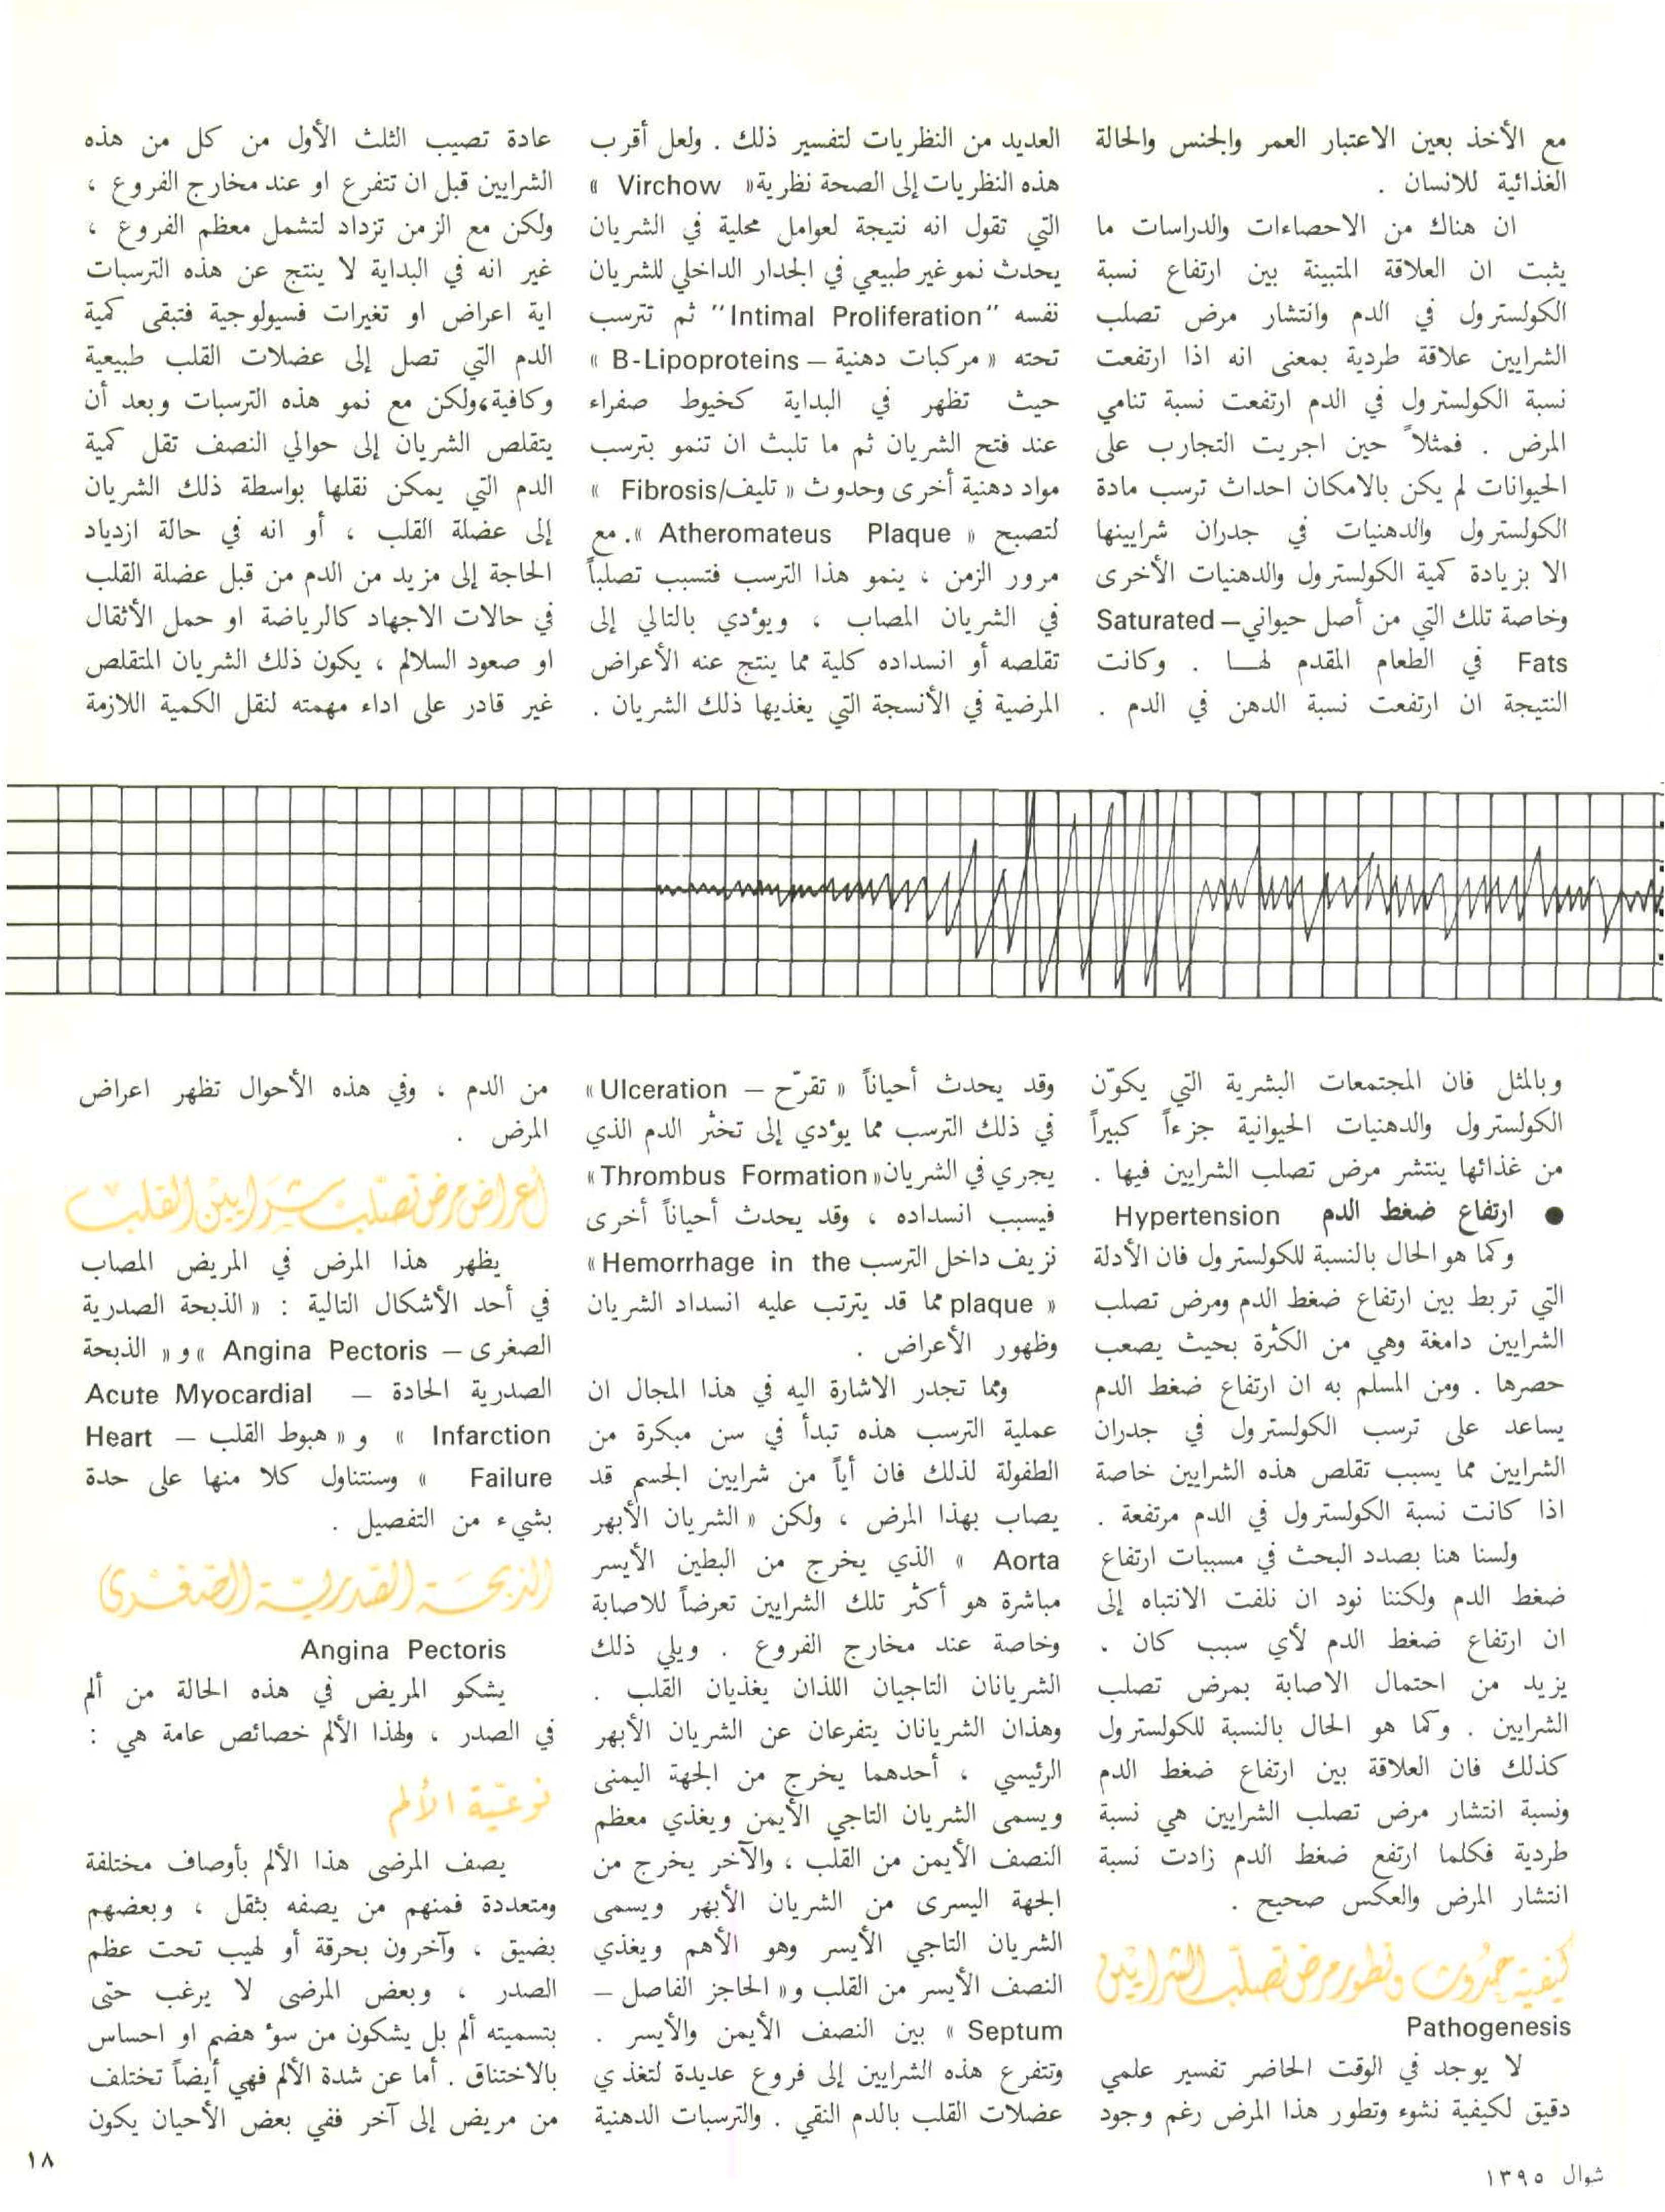 مع الأخذ بعين الاعتبار العمر والجنس والحالة
الغذائية للانسان .
ان هناك من الاحصاءات والدراسات ما
يثبت ان العلاقة المتبينة بين ارتفاع نسبة
الكولسترول في الدم وانتشار مرض تصلب
الشرايين علاقة طردية بمعنى انه اذا ارتفعت
نسبة الكولسترول في الدم ارتفعت نسبة تنامي
المرض . فمثلاً حين اجريت التجارب على
الحيوانات لم يكن بالامكان احداث ترسب مادة
الكولسترول والدهنيات في جدران شرايينها
الا بزيادة كمية الكولسترول والدهنيات الأخرى
وخاصة تلك التي من أصل حيواني – Saturated
Fats في الطعام المقدم لهــا . وكانت
النتيجة ان ارتفعت نسبة الدهن في الدم .
وبالمثل فان المجتمعات البشرية التي يكوّن
الكولسترول والدهنيات الحيوانية جزءاً كبيراً
من غذائها ينتشر مرض تصلب الشرايين فيها .
● ارتفاع ضغط الدم Hypertension
وكما هو الحال بالنسبة للكولسترول فان الأدلة
التي تربط بين ارتفاع ضغط الدم ومرض تصلب
الشرايين دامغة وهي من الكثرة بحيث يصعب
حصرها . ومن المسلم به ان ارتفاع ضغط الدم
يساعد على ترسب الكولسترول في جدران
الشرايين مما يسبب تقلص هذه الشرايين خاصة
اذا كانت نسبة الكولسترول في الدم مرتفعة .
ولسنا هنا بصدد البحث في مسببات ارتفاع
ضغط الدم ولكننا نود ان نلفت الانتباه إلى
ان ارتفاع ضغط الدم لأي سبب كان .
يزيد من احتمال الاصابة بمرض تصلب
الشرايين . وكما هو الحال بالنسبة للكولسترول
كذلك فان العلاقة بين ارتفاع ضغط الدم
ونسبة انتشار مرض تصلب الشرايين هي نسبة
طردية فكلما ارتفع ضغط الدم زادت نسبة
انتشار المرض والعكس صحيح .
كيفية حدوث وتطور مرض تصلّب الشرايين
Pathogenesis
لا يوجد في الوقت الحاضر تفسير علمي
دقيق لكيفية نشوء وتطور هذا المرض رغم وجود
العديد من النظريات لتفسير ذلك . ولعل أقرب
هذه النظريات إلى الصحة نظرية « Virchow »
التي تقول انه نتيجة لعوامل محلية في الشريان
يحدث نمو غير طبيعي في الجدار الداخلي للشريان
نفسه "Intimal Proliferation" ثم تترسب
تحته « مركبات دهنية – B-Lipoproteins »
حيث تظهر في البداية كخيوط صفراء
عند فتح الشريان ثم ما تلبث ان تنمو بترسب
مواد دهنية أخرى وحدوث « تليف/Fibrosis »
لتصبح « Atheromateus Plaque ». مع
مرور الزمن ، ينمو هذا الترسب فتسبب تصلباً
في الشريان المصاب ، ويؤدي بالتالي إلى
تقلصه أو انسداده كلية مما ينتج عنه الأعراض
المرضية في الأنسجة التي يغذيها ذلك الشريان .
وقد يحدث أحياناً « تقرّح – Ulceration »
في ذلك الترسب مما يؤدي إلى تخثر الدم الذي
يجري في الشريان « Thrombus Formation »
فيسبب انسداده ، وقد يحدث أحياناً أخرى
نزيف داخل الترسب Hemorrhage in the »
« plaque مما قد يترتب عليه انسداد الشريان
وظهور الأعراض .
ومما تجدر الاشارة اليه في هذا المجال ان
عملية الترسب هذه تبدأ في سن مبكرة من
الطفولة لذلك فان أياً من شرايين الجسم قد
يصاب بهذا المرض ، ولكن « الشريان الأبهر
Aorta » الذي يخرج من البطين الأيسر
مباشرة هو أكثر تلك الشرايين تعرضاً للاصابة
وخاصة عند مخارج الفروع . ويلي ذلك
الشريانان التاجيان اللذان يغذيان القلب .
وهذان الشريانان يتفرعان عن الشريان الأبهر
الرئيسي ، أحدهما يخرج من الجهة اليمنى
ويسمى الشريان التاجي الأيمن ويغذي معظم
النصف الأيمن من القلب ، والآخر يخرج من
الجهة اليسرى من الشريان الأبهر ويسمى
الشريان التاجي الأيسر وهو الأهم ويغذي
النصف الأيسر من القلب و« الحاجز الفاصل –
Septum » بين النصف الأيمن والأيسر .
وتتفرع هذه الشرايين إلى فروع عديدة لتغذي
عضلات القلب بالدم النقي . والترسبات الدهنية
عادة تصيب الثلث الأول من كل من هذه
الشرايين قبل ان تتفرع او عند مخارج الفروع ،
ولكن مع الزمن تزداد لتشمل معظم الفروع ،
غير انه في البداية لا ينتج عن هذه الترسبات
اية اعراض او تغيرات فسيولوجية فتبقى كمية
الدم التي تصل إلى عضلات القلب طبيعية
وكافية،ولكن مع نمو هذه الترسبات وبعد أن
يتقلص الشريان إلى حوالي النصف تقل كمية
الدم التي يمكن نقلها بواسطة ذلك الشريان
إلى عضلة القلب ، أو انه في حالة ازدياد
الحاجة إلى مزيد من الدم من قبل عضلة القلب
في حالات الاجهاد كالرياضة او حمل الأثقال
او صعود السلالم ، يكون ذلك الشريان المتقلص
غير قادر على اداء مهمته لنقل الكمية اللازمة
من الدم ، وفي هذه الأحوال تظهر اعراض
المرض .
أعراض مرض تصلّب شرايين القلب
يظهر هذا المرض في المريض المصاب
في أحد الأشكال التالية : « الذبحة الصدرية
الصغرى – Angina Pectoris »و « الذبحة
الصدرية الحادة – Acute Myocardial
Infarction » و « هبوط القلب – Heart
Failure » وسنتناول كلا منها على حدة
بشيء من التفصيل .
الذبحة الصدرية الصغرى
Angina Pectoris
يشكو المريض في هذه الحالة من ألم
في الصدر ، ولهذا الألم خصائص عامة هي :
نوعيّة الألم
يصف المرضى هذا الألم بأوصاف مختلفة
ومتعددة فمنهم من يصفه بثقل ، وبعضهم
بضيق ، وآخرون بحرقة أو لهيب تحت عظم
الصدر ، وبعض المرضى لا يرغب حتى
بتسميته ألم بل يشكون من سوء هضم او احساس
بالاختناق . أما عن شدة الألم فهي أيضاً تختلف
من مريض إلى آخر ففي بعض الأحيان يكون
شوال ١٣٩٥
١٨